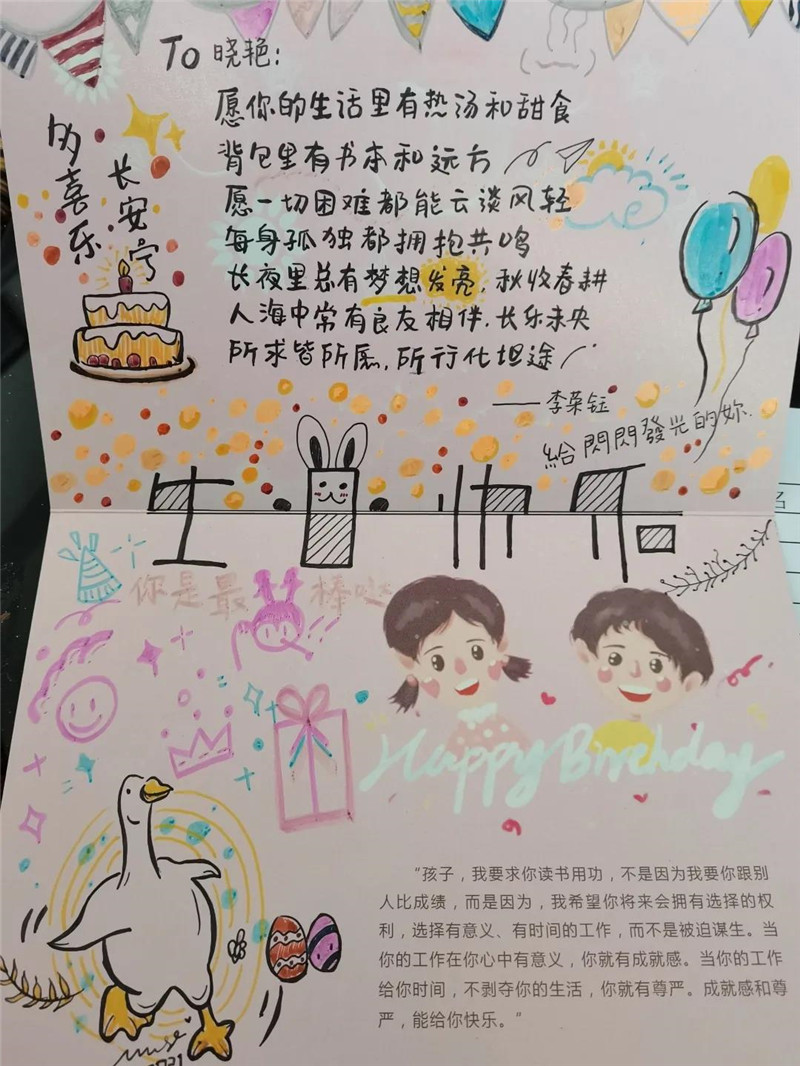 To 晓艳：
愿你的生活里有热汤和甜食
背包里有书本和远方
愿一切困难都能云谈风轻
每身孤独都拥抱共鸣
长夜里总有梦想发亮，秋收春耕
人海中常有良友相伴，长乐未央
所求皆所愿，所行化坦途
——李荣钰
給閃閃發光的妳.
多喜乐
长安宁
生日快乐
你是最棒哒
Happy Birthday
“孩子，我要求你读书用功，不是因为我要你跟别
人比成绩，而是因为，我希望你将来会拥有选择的权
利，选择有意义、有时间的工作，而不是被迫谋生。当
你的工作在你心中有意义，你就有成就感。当你的工作
给你时间，不剥夺你的生活，你就有尊严。成就感和尊
严，能给你快乐。”
2021